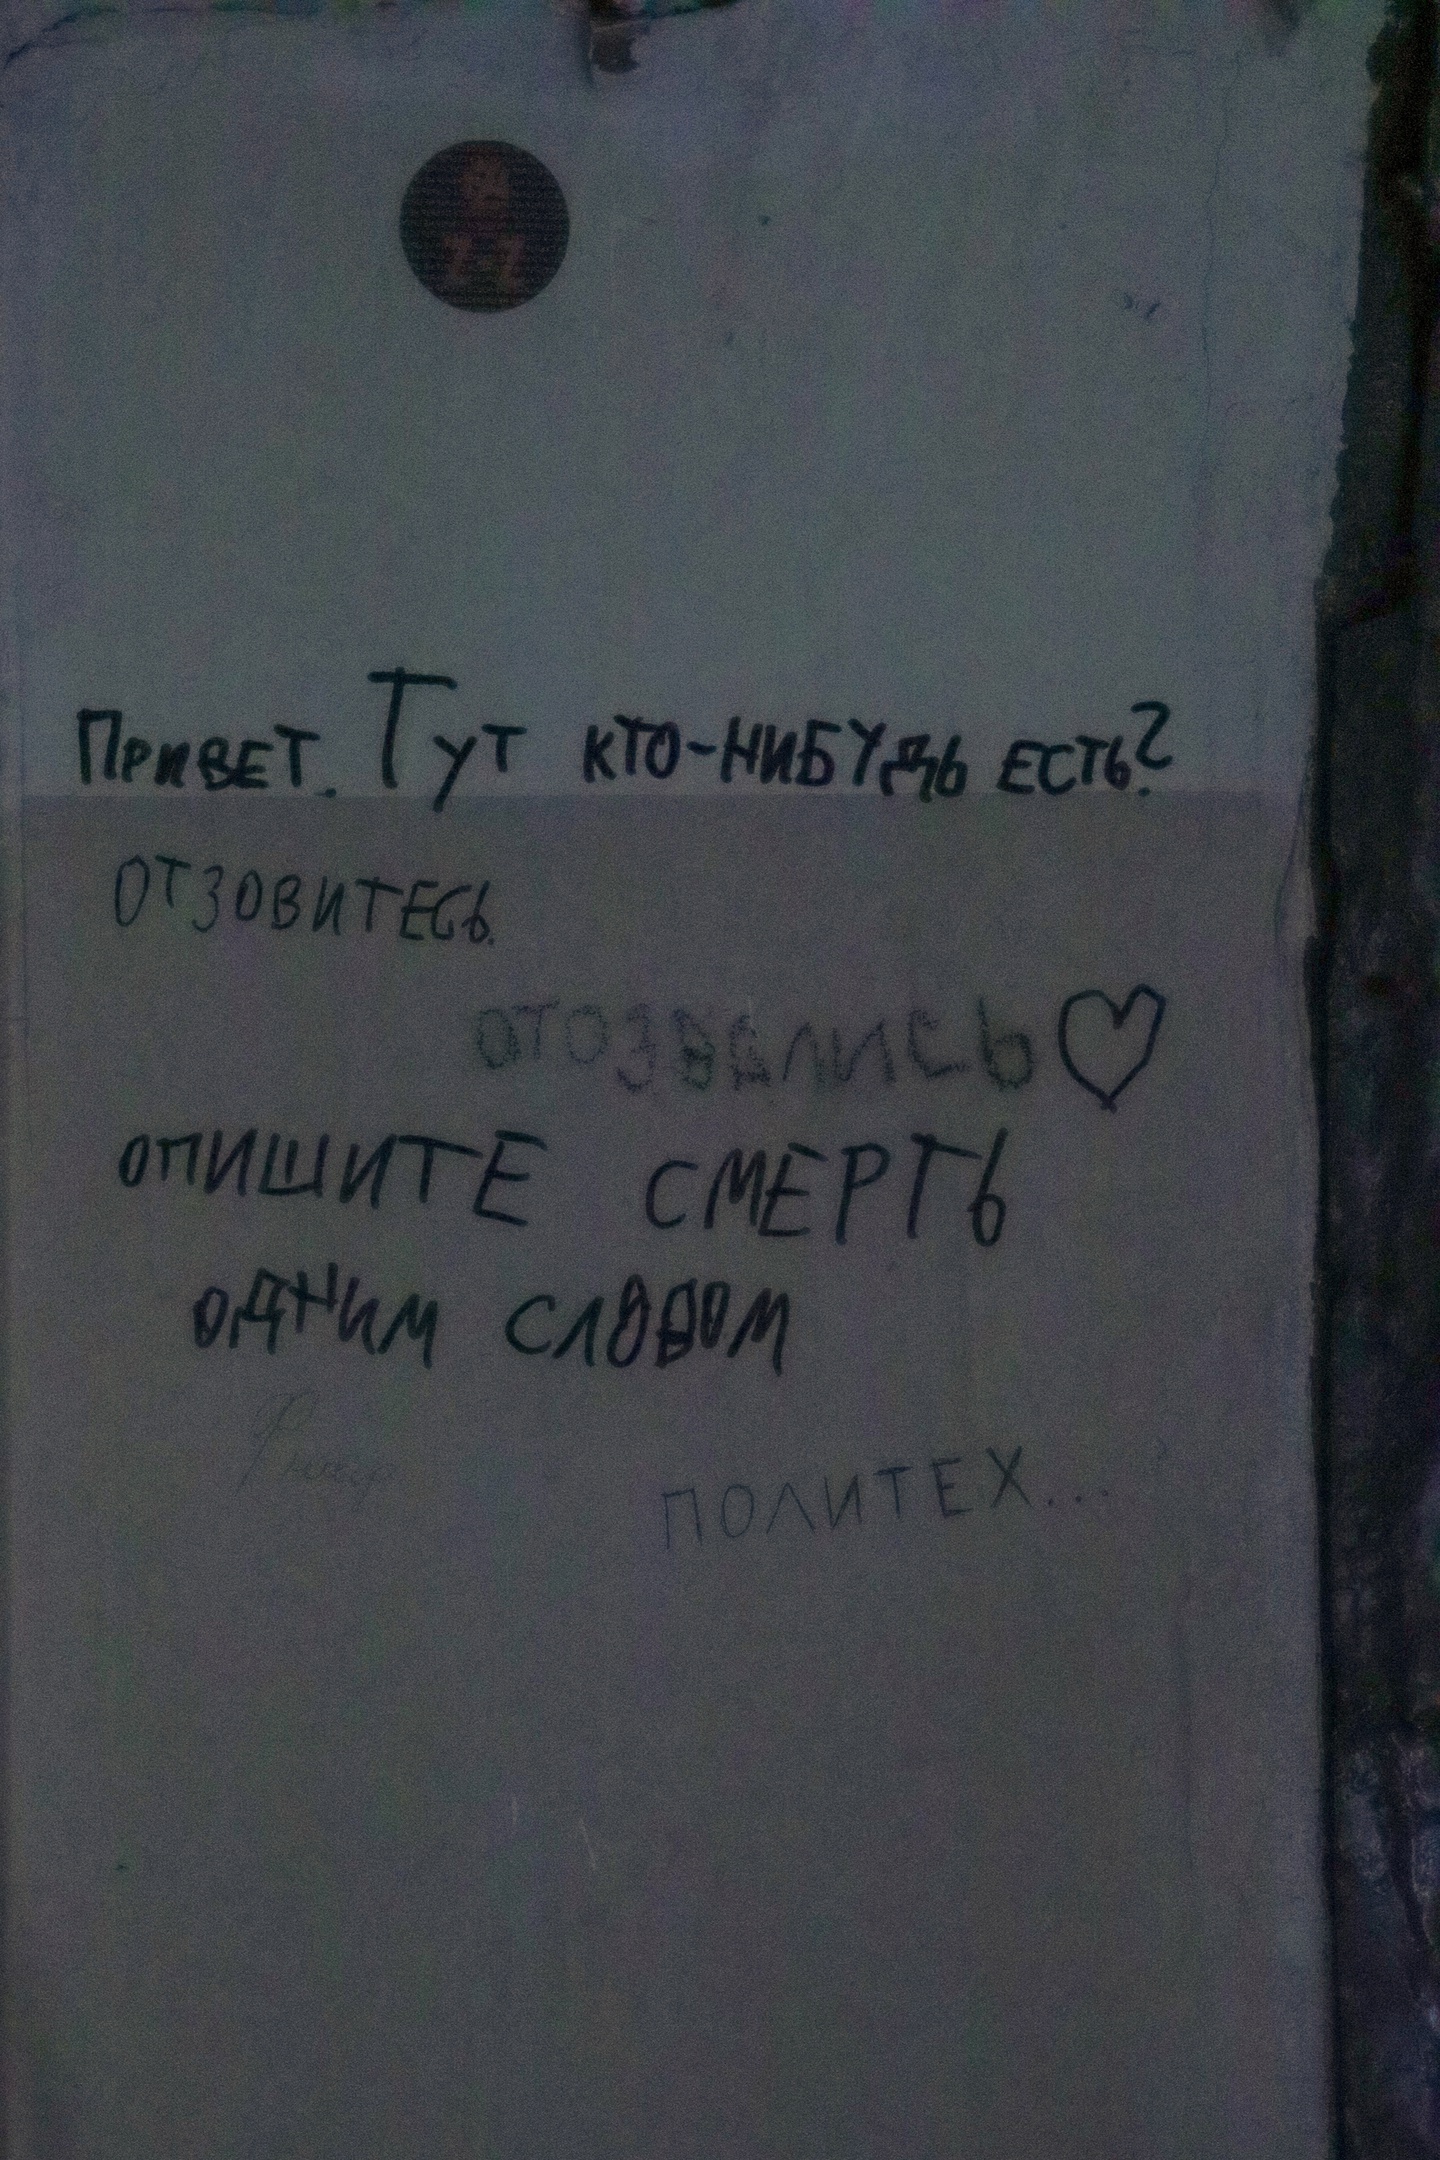 Привет. Тут кто-нибудь есть?
ОТЗОВИТЕСЬ.
ОТОЗВАЛИСЬ
ОПИШИТЕ СМЕРТЬ
ОДНИМ СЛОВОМ
ПОЛИТЕХ...